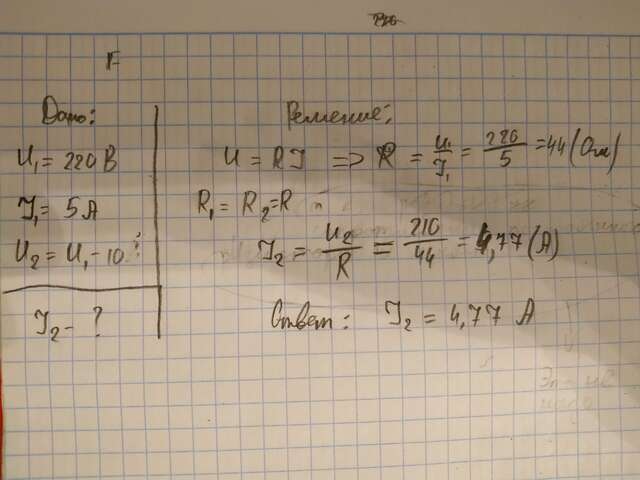 Дано:
U₁ = 220 В
I₁ = 5 А
U₂ = U₁ - 10
I₂ - ?
Решение:
U = R I => R = U₁/I₁ = 220/5 = 44 (Ом)
R₁ = R₂ = R
I₂ = U₂/R = 210/44 = 4,77 (А)
Ответ: I₂ = 4,77 А